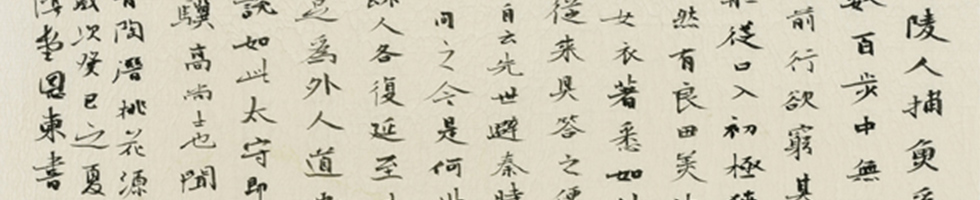 陵人捕魚
百步中無
前行欲窮其
從口入初極
然有良田美
女衣著悉如
從來具答之便
自云先世避秦時
問之今是何世
人各復延至
是為外人道
說如此太守即
驥高尚士也聞
有陶潛桃花源
歲次癸巳之夏
東書